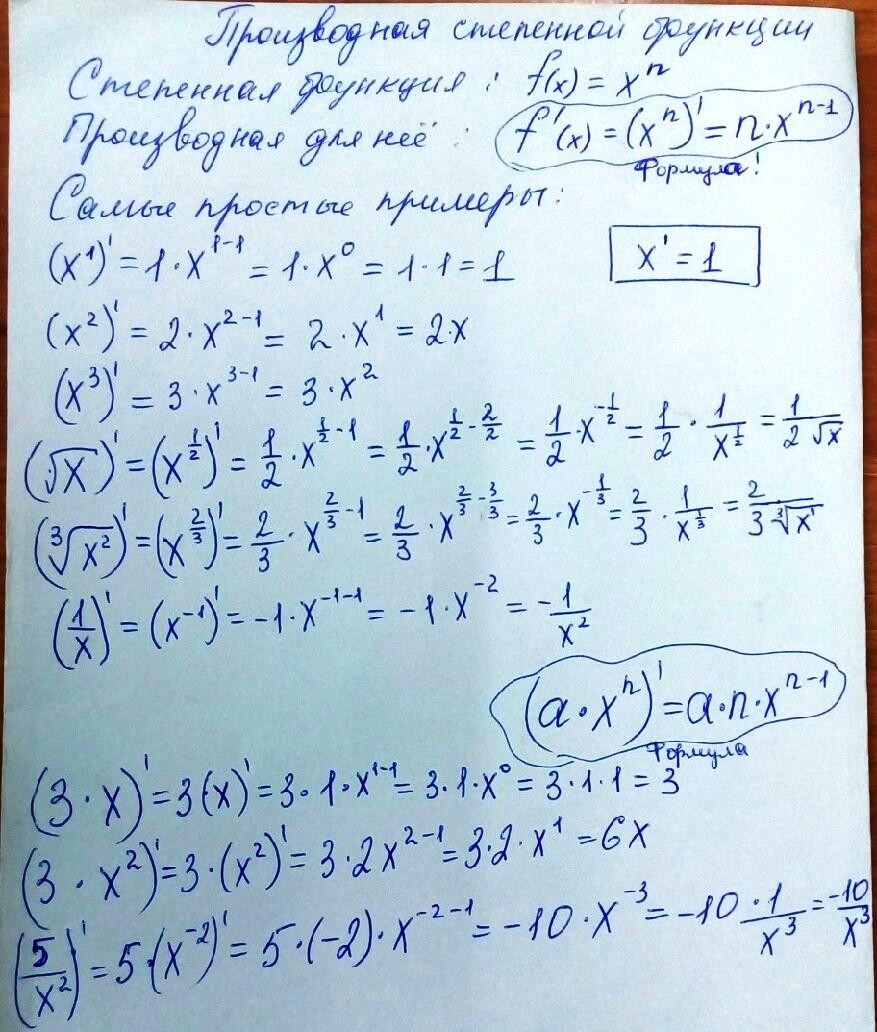 Производная степенной функции
Степенная функция: f(x) = xⁿ
Производная для неё: f'(x) = (xⁿ)' = n·xⁿ⁻¹
Формула!
Самые простые примеры:
(x¹)' = 1·x¹⁻¹ = 1·x⁰ = 1·1 = 1
x' = 1
(x²)' = 2·x²⁻¹ = 2·x¹ = 2·x
(x³)' = 3·x³⁻¹ = 3·x²
(√x)' = (x^(1/2))' = 1/2·x^(1/2-1) = 1/2·x^(1/2-2/2) = 1/2·x^(-1/2) = 1/2·1/x^(1/2) = 1/(2√x)
(∛x²)' = (x^(2/3))' = 2/3·x^(2/3-1) = 2/3·x^(2/3-3/3) = 2/3·x^(-1/3) = 2/3·1/x^(1/3) = 2/(3∛x)
(1/x)' = (x⁻¹)' = -1·x⁻¹⁻¹ = -1·x⁻² = -1/x²
(a·xⁿ)' = a·n·xⁿ⁻¹
Формула
(3·x)' = 3(x)' = 3·1·x¹⁻¹ = 3·1·x⁰ = 3·1·1 = 3
(3·x²)' = 3·(x²)' = 3·2x²⁻¹ = 3·2·x¹ = 6x
(5/x²)' = 5·(x⁻²)' = 5·(-2)·x⁻²⁻¹ = -10·x⁻³ = -10·1/x³ = -10/x³